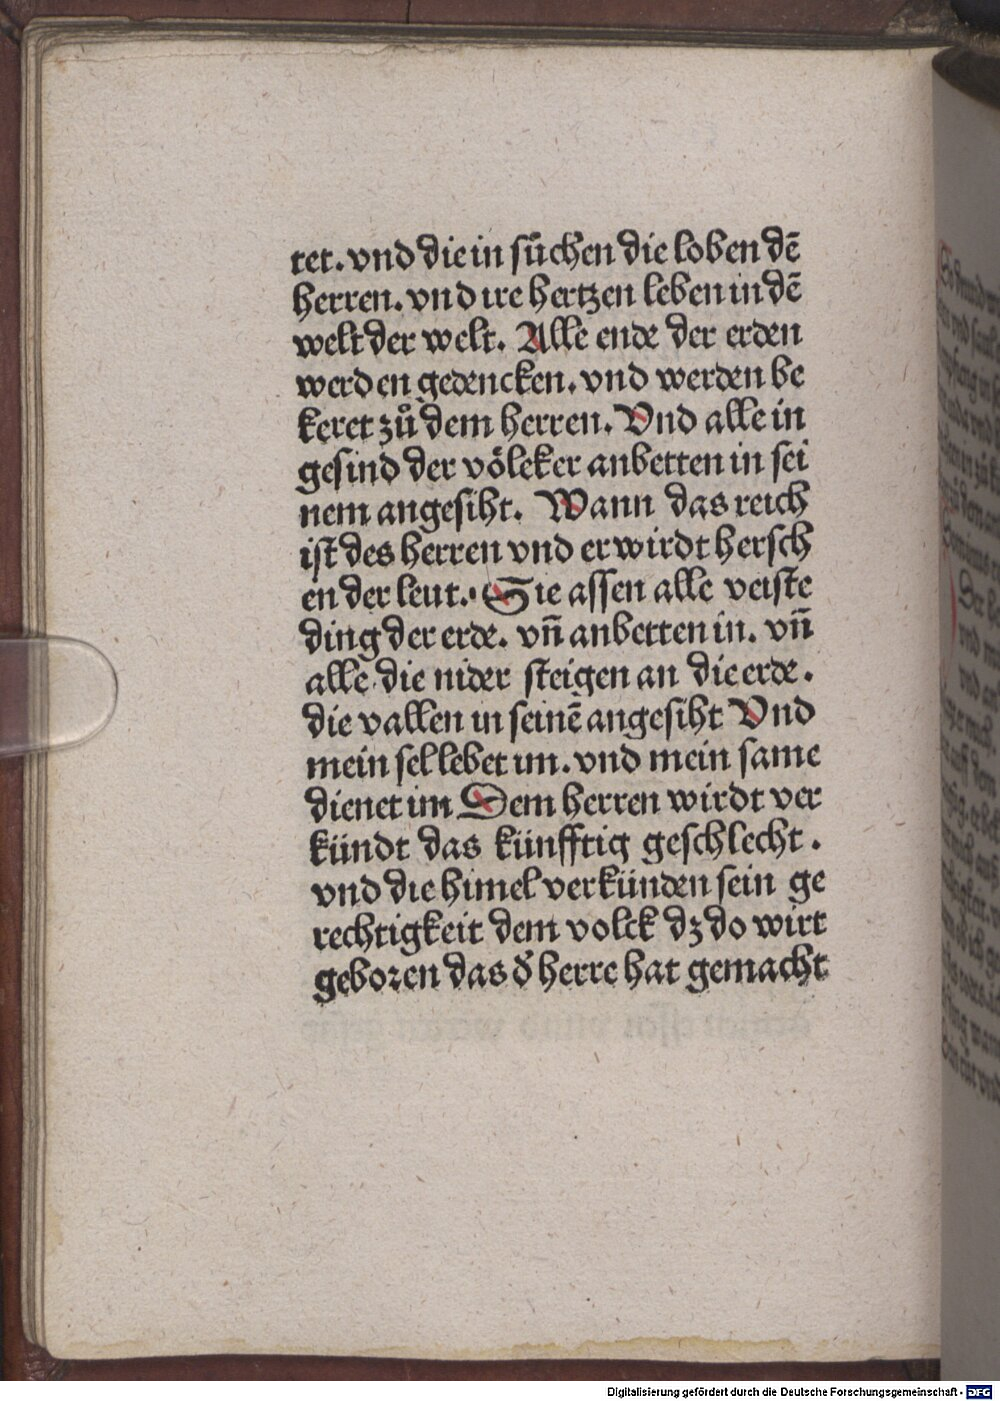 tet. vnd die in sůchen die loben dē
herren. vnd ire hertzen leben in dē
welt der welt. Alle ende der erden
werden gedencken. vnd werden be
keret zů dem herren. Vnd alle in
gesind der völcker anbetten in sei
nem angesiht. Wann das reich
ist des herren vnd er wirdt hersch
en der leut. Sie assen alle veiste
ding der erde. vn̄ anbetten in. vn̄
alle die nider steigen an die erde.
die vallen in seinē angesiht Vnd
mein sel lebet im. vnd mein same
dienet im Dem herren wirdt ver
kündt das künfftig geschlecht.
vnd die himel verkünden sein ge
rechtigkeit dem volck dz do wirt
geboren das d̄ herre hat gemacht
Digitalisierung gefördert durch die Deutsche Forschungsgemeinschaft - DFG